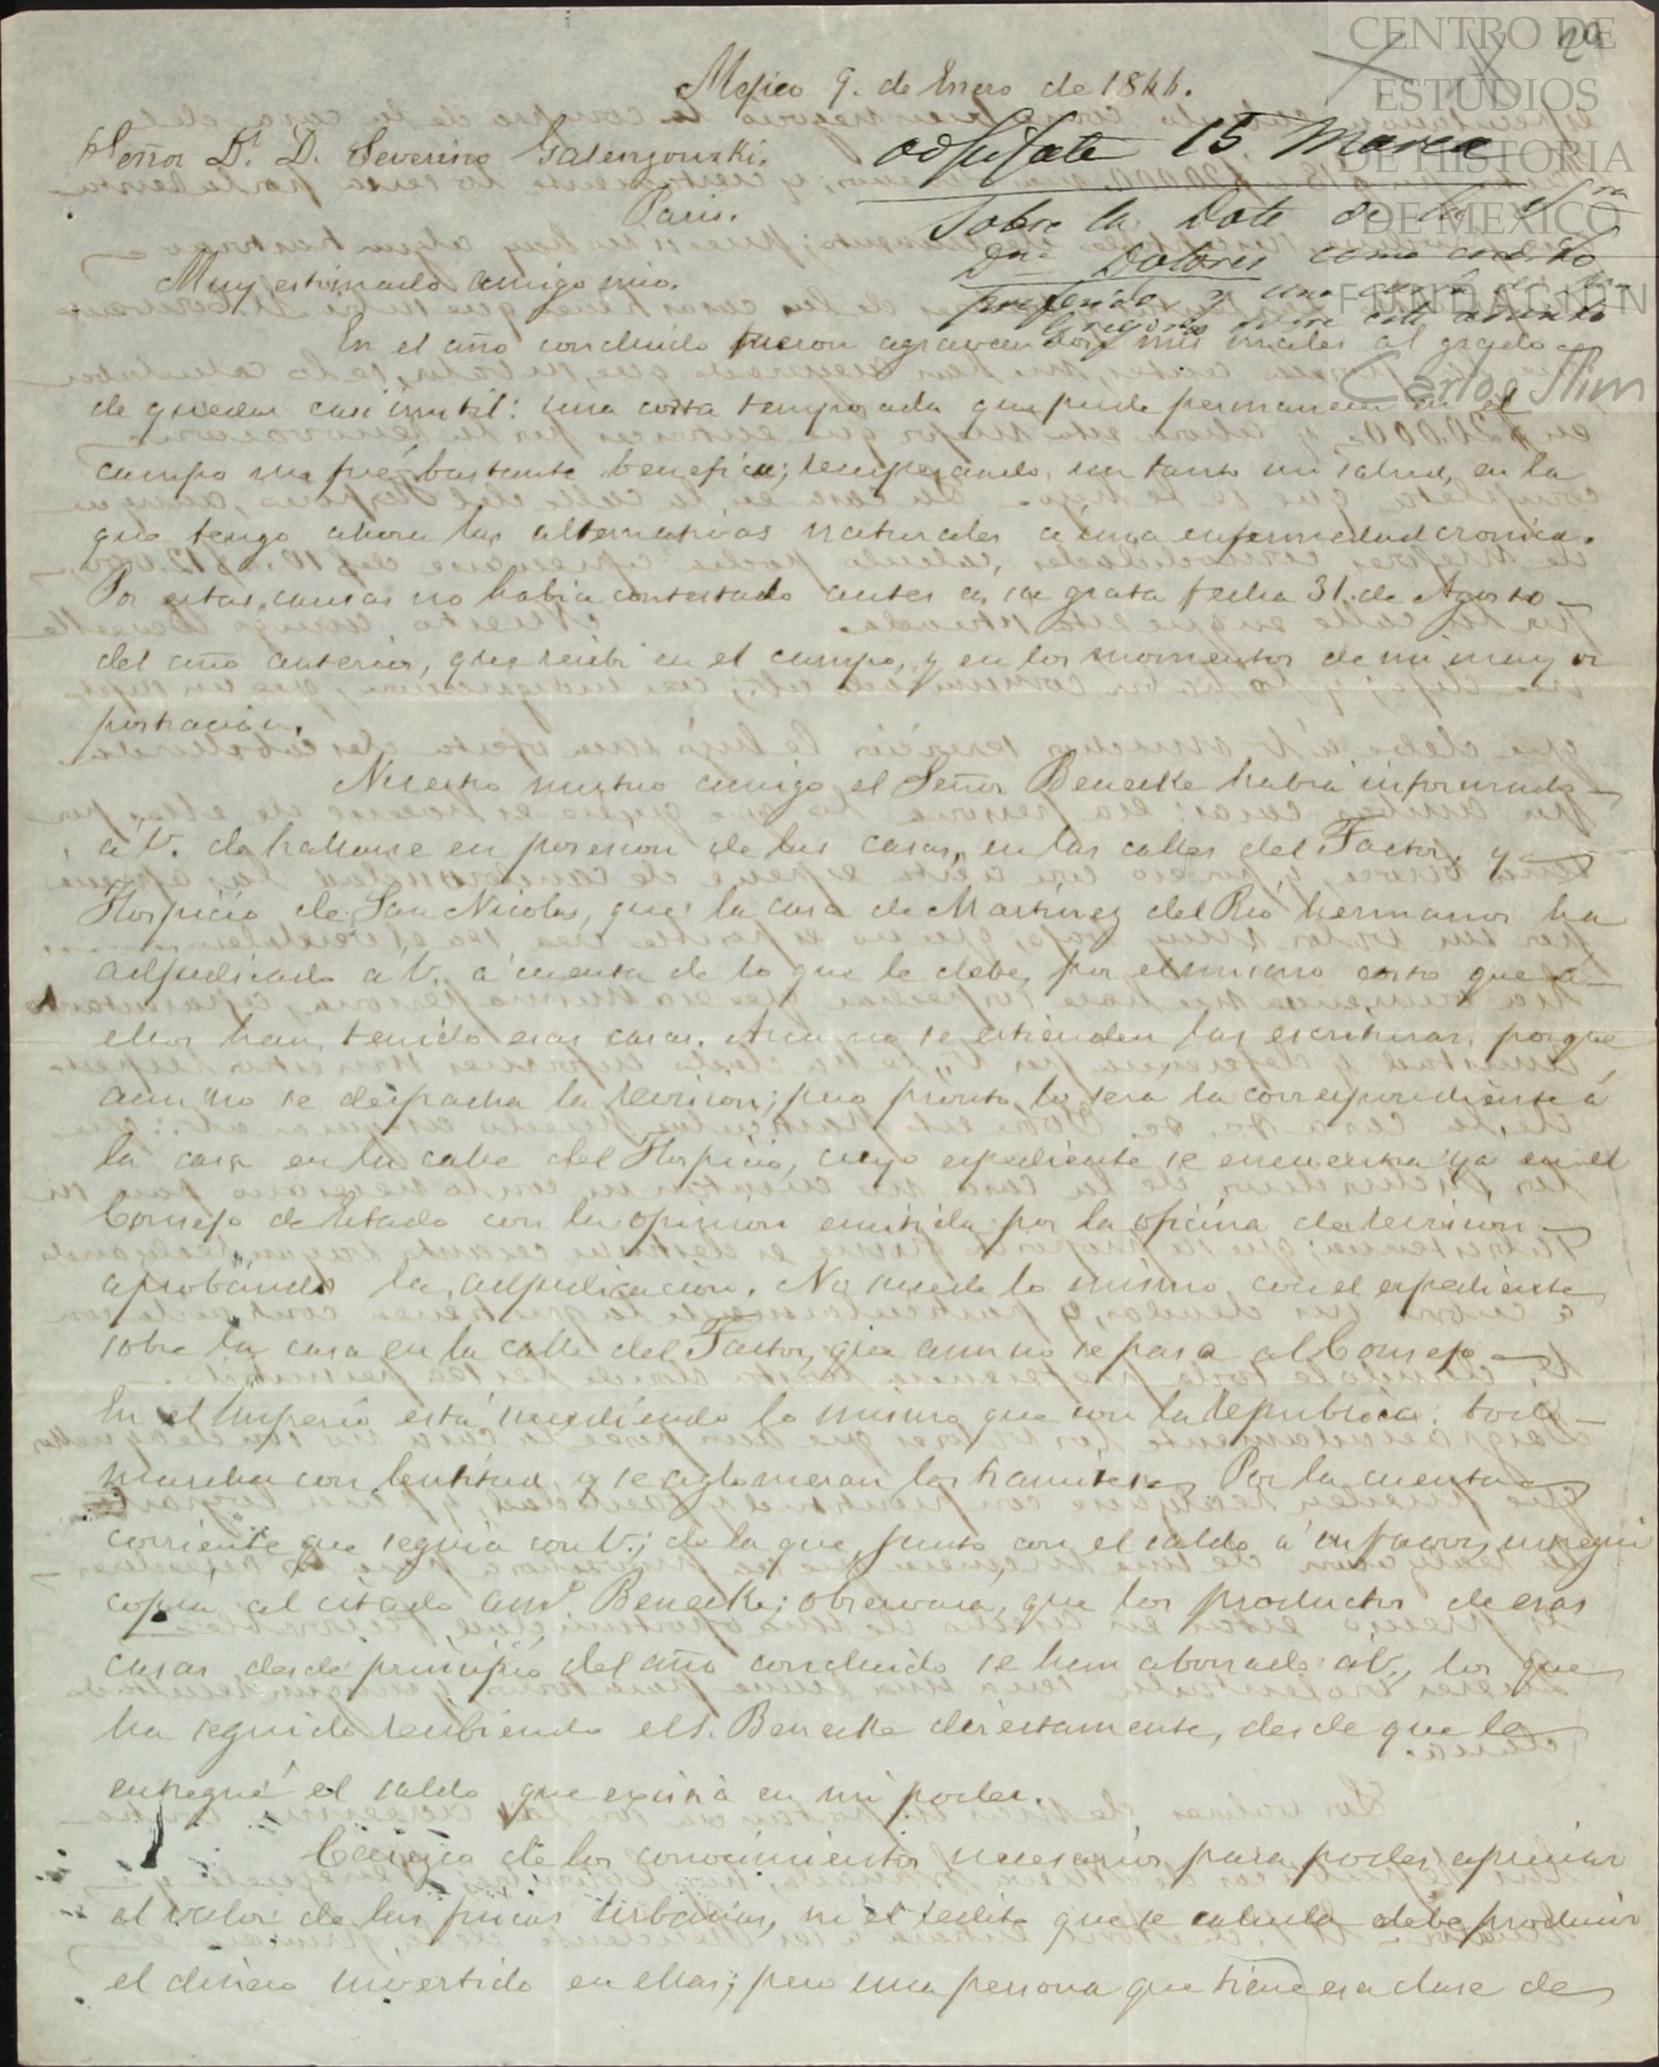 Mejico 9. de Enero de 1866.
Señor Dr. D. Severino Galenzowski.
Paris.
15 Marca
Sobre la Dote de la Sra
Dña Dolores como credito
preferido y una carta de Dn
Gregorio sobre este asunto
Muy estimado amigo mio.
En el año concluido fueron agravandose mis males al grado
de quedar casi inutil: una corta temporada que pude permanecer en el
campo me fué bastante benefica; recuperando un tanto mi salud, en la
que tengo ahora las alternativas naturales a una enfermedad cronica.
Por estas causas no habia contestado antes a su grata fecha 31. de Agosto
del año anterior, que recibi en el campo, y en los momentos de mi mayor
postracion.
Nuestro mutuo amigo el Señor Benecke habrá informado
á V. de hallarse en posesion de las casas, en las calles del Factor, y
Hospicio de San Nicolas, que la casa de Martinez del Rio hermanos ha
adjudicado á V. á cuenta de lo que le debe, por el mismo costo que á
ellos han tenido esas casas. Aun no se estienden las escrituras, porque
aun no se despacha la revision; pero pronto lo será la correspondiente á
la casa en la calle del Hospicio, cuyo espediente se encuentra ya en el
Consejo de Estado con la opinion emitida por la oficina de revision
aprobando la adjudicacion. No sucede lo mismo con el espediente
sobre la casa en la calle del Factor, que aun no se pasa al Consejo.
En el Imperio está sucediendo lo mismo que con la Republica: todo
marcha con lentitud y se aglomeran los tramites. Por la cuenta
corriente que seguia con V.; de la que, junto con el saldo á su favor, entregué
copia al citado amo. Benecke; observará, que los productos de esas
casas desde principio del año concluido se han abonado á V., los que
ha seguido recibiendo el S. Benecke directamente, desde que le
entregué el saldo que existia en mi poder.
Carezco de los conocimientos necesarios para poder apreciar
el valor de las fincas urbanas, ni el redito que se calcula debe producir
el dinero invertido en ellas; pero una persona que tiene esa clase de
CENTRO DE
ESTUDIOS
DE HISTORIA
DE MEXICO
FUNDACIÓN
Carlos Slim